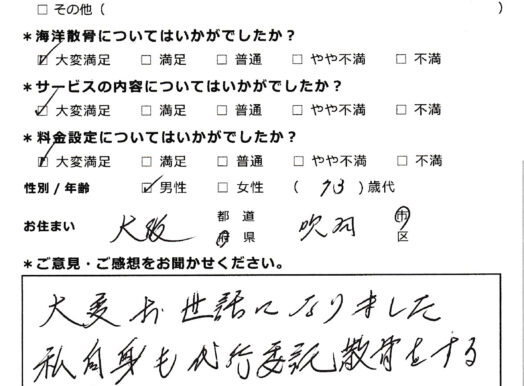 □ その他（　　　　　　　　　　）
＊海洋散骨についてはいかがでしたか？
☑ 大変満足 □ 満足 □ 普通 □ やや不満 □ 不満
＊サービスの内容についてはいかがでしたか？
☑ 大変満足 □ 満足 □ 普通 □ やや不満 □ 不満
＊料金設定についてはいかがでしたか？
☑ 大変満足 □ 満足 □ 普通 □ やや不満 □ 不満
性別 / 年齢 ☑ 男性 □ 女性 （ 73 ）歳代
お住まい 大阪 都 道 府 県 吹田 市 区
＊ご意見・ご感想をお聞かせください。
大変お世話になりました
私自身も代行委託散骨をする